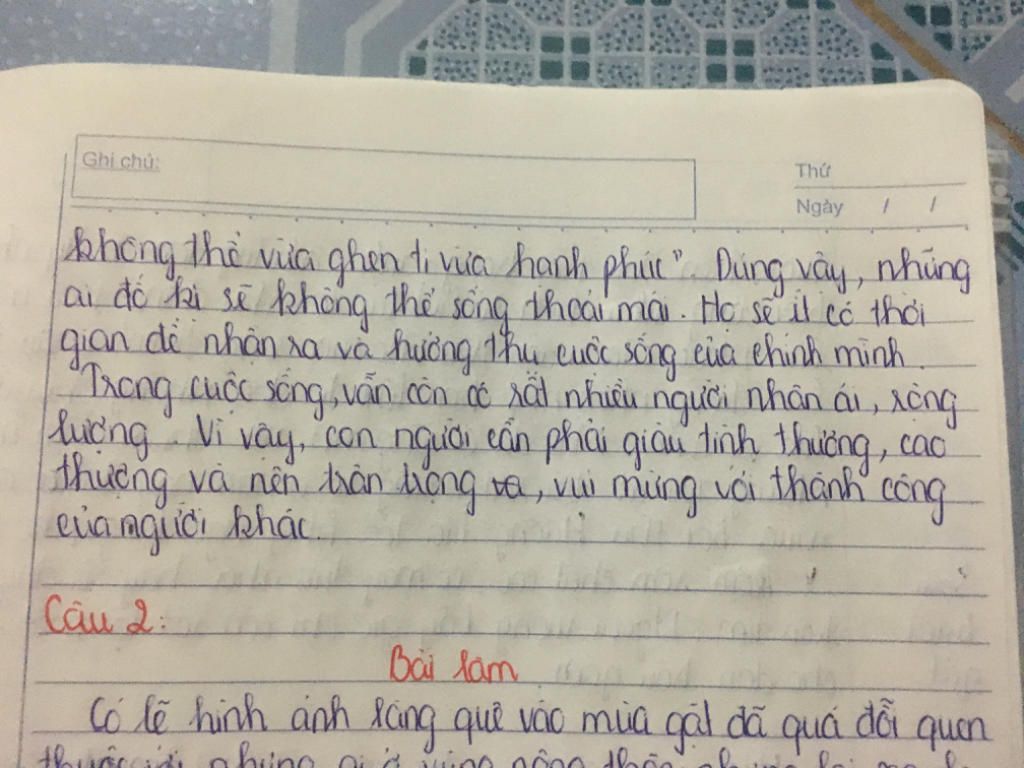 Ghi chú:
Thứ
Ngày / /
không thể vừa ghen tị vừa hạnh phúc". Đúng vậy, những
ai đố kị sẽ không thể sống thoải mái. Họ sẽ ít có thời
gian để nhận ra và hưởng thụ cuộc sống của chính mình.
Trong cuộc sống, vẫn còn có rất nhiều người nhân ái, rộng
lượng. Vì vậy, con người cần phải giàu tình thương, cao
thượng và nên trân trọng, vui mừng với thành công
của người khác.
Câu 2:
Bài làm
Có lẽ hình ảnh làng quê vào mùa gặt đã quá đỗi quen